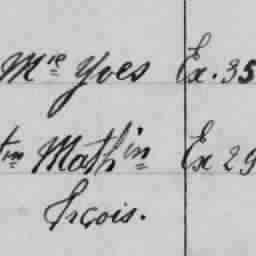 Mie Yves Ex. 35
tin Mathin Ex 29
frçois.